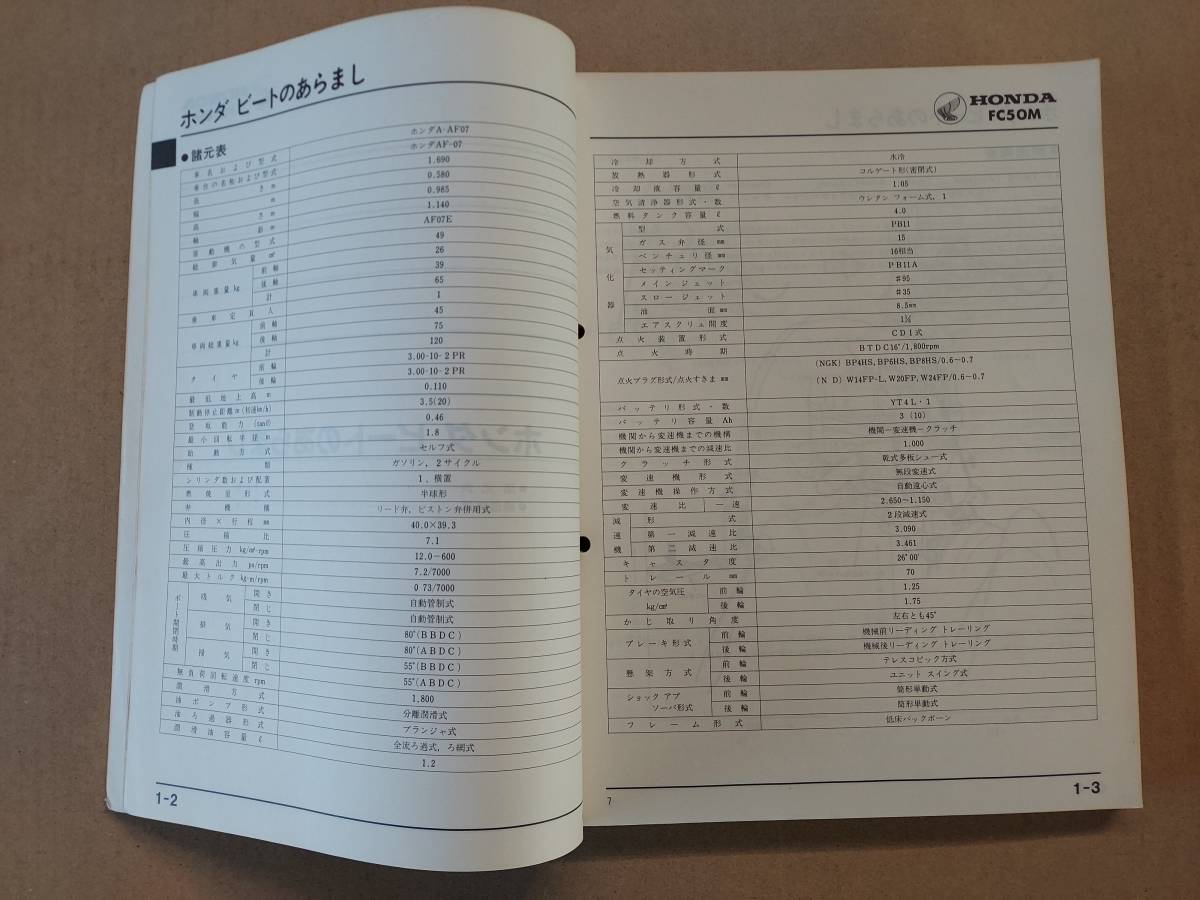 ホンダ ビートのあらまし
● 諸元表
車名および型式 ホンダA-AF07
車台の名称および型式 ホンダAF-07
長さ m 1.690
幅 m 0.580
高さ m 0.985
軸距 m 1.140
原動機の型式 AF07E
総排気量 cm³ 49
車両重量 kg 前軸 26
後軸 39
計 65
乗車定員 人 1
車両総重量 kg 前軸 45
後軸 75
計 120
タイヤ 前輪 3.00-10-2 PR
後輪 3.00-10-2 PR
最低地上高 m 0.110
制動停止距離 m (初速km/h) 3.5(20)
登坂能力 (tanθ) 0.46
最小回転半径 m 1.8
始動方式 セルフ式
種類 ガソリン, 2サイクル
シリンダ数および配置 1, 横置
燃焼室形式 半球形
弁機構 リード弁, ピストン弁併用式
内径×行程 mm 40.0×39.3
圧縮比 7.1
圧縮圧力 kg/cm²-rpm 12.0-600
最高出力 ps/rpm 7.2/7000
最大トルク kg-m/rpm 0 73/7000
ポート開閉時期 吸気 開き 自動管制式
閉じ 自動管制式
排気 開き 80°(BBDC)
閉じ 80°(ABDC)
掃気 開き 55°(BBDC)
閉じ 55°(ABDC)
無負荷回転速度 rpm 1,800
潤滑方式 分離潤滑式
油ポンプ形式 プランジャ式
油ろ過器形式 全流ろ過式, ろ網式
潤滑油容量 ℓ 1.2
1-2
HONDA
FC50M
冷却方式 水冷
放熱器形式 コルゲート形(密閉式)
冷却液容量 ℓ 1.05
空気清浄器形式・数 ウレタン フォーム式, 1
燃料タンク容量 ℓ 4.0
気化器 型式 PB11
ガス弁径 mm 15
ベンチュリ径 mm 16相当
セッティングマーク PB11A
メインジェット #95
スロージェット #35
油面 mm 8.5mm
エアスクリュ開度
点火装置形式 CDI式
点火時期 BTDC16°/1,800rpm
点火プラグ形式/点火すきま mm (NGK) BP4HS, BP6HS, BP8HS/0.6~0.7
(ND) W14FP-L, W20FP, W24FP/0.6~0.7
バッテリ形式・数 YT4L・1
バッテリ容量 Ah 3 (10)
機関から変速機までの機構 機関-変速機-クラッチ
機関から変速機までの減速比 1.000
クラッチ形式 乾式多板シュー式
変速機形式 無段変速式
変速機操作方式 自動遠心式
変速比 一速 2.650~1.150
減速機 形式 2段減速式
第一減速比 3.090
第二減速比 3.461
キャスタ度 26°00′
トレール mm 70
タイヤの空気圧 kg/cm² 前輪 1.25
後輪 1.75
かじ取り角度 左右とも45°
ブレーキ形式 前輪 機械前リーディング トレーリング
後輪 機械後リーディング トレーリング
懸架方式 前輪 テレスコピック方式
後輪 ユニット スイング式
ショック アブソーバ形式 前輪 筒形単動式
後輪 筒形単動式
フレーム形式 低床バックボーン
7
1-3